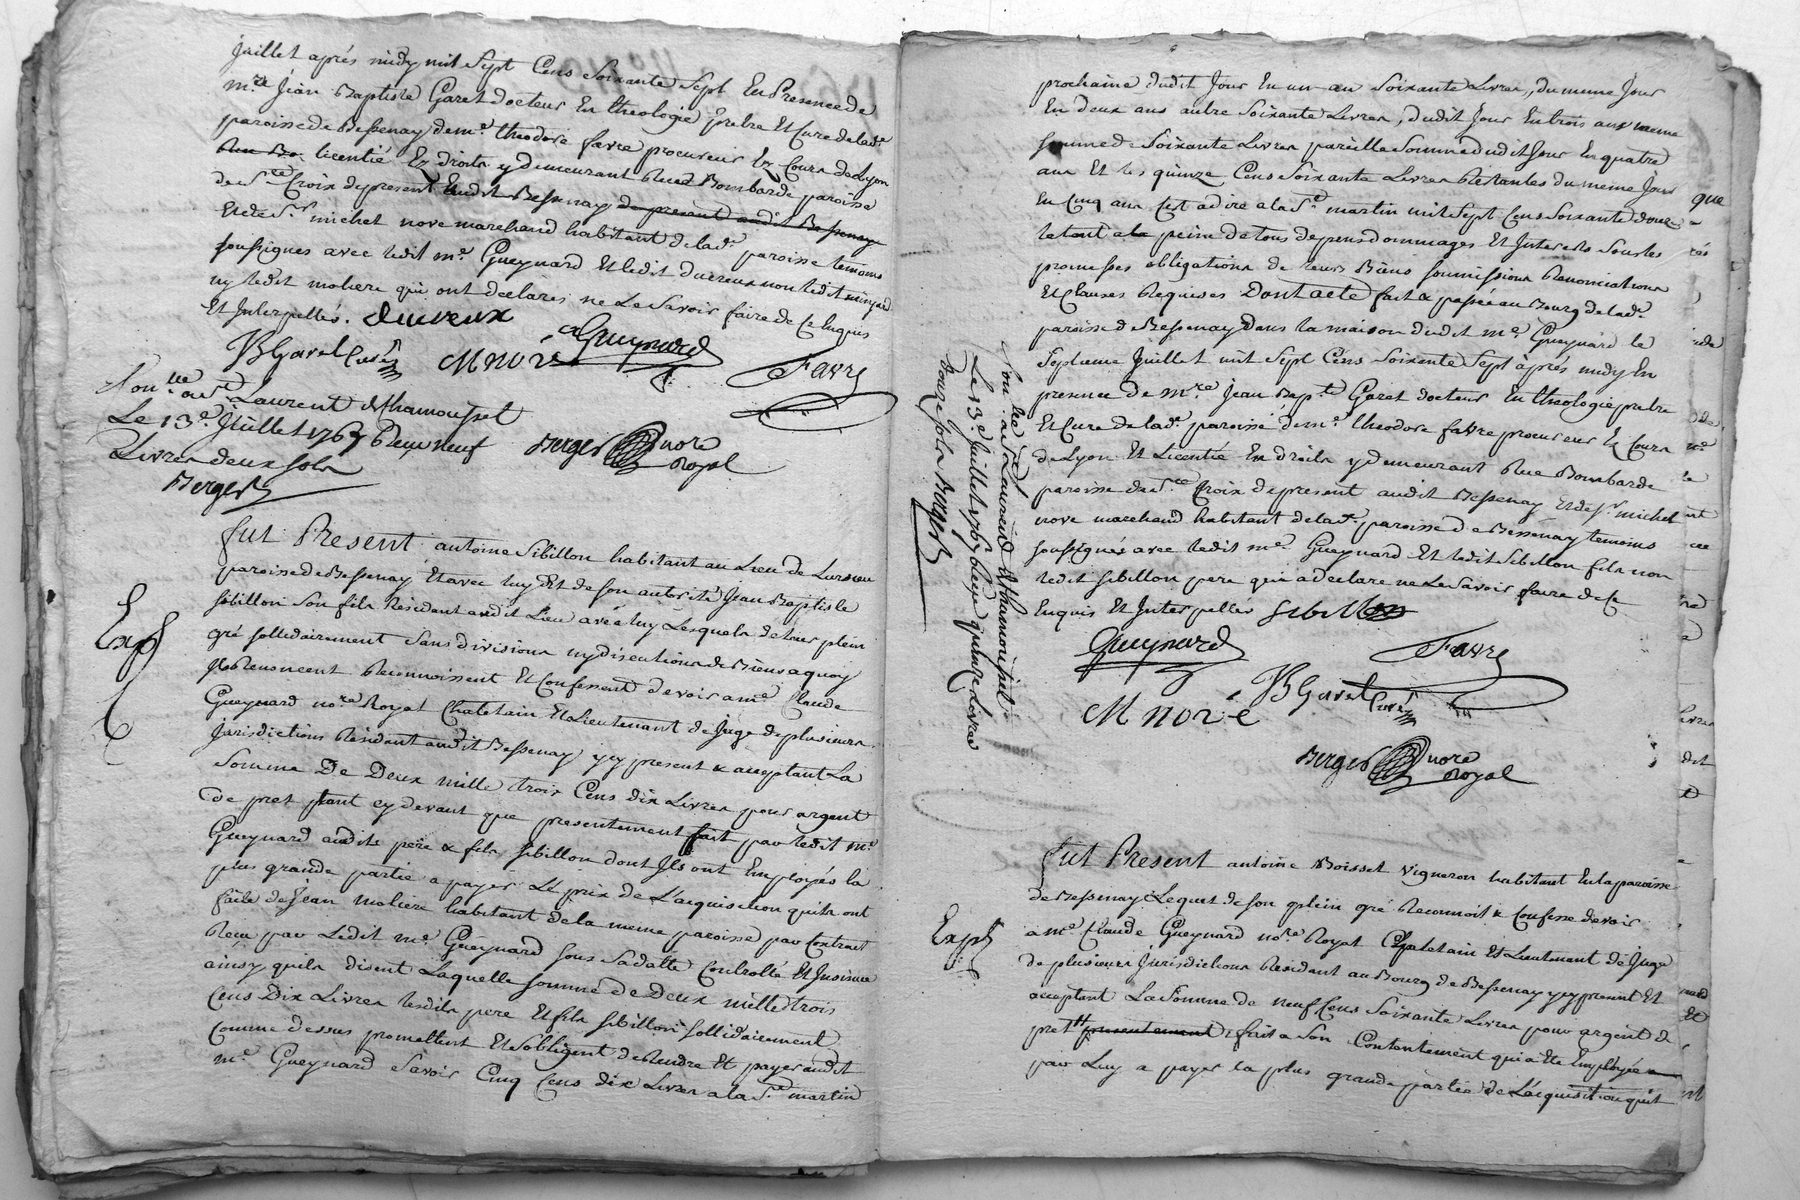 Juillet après midy mil Sept Cens Soixante Sept En Presence de
mre Jéan Baptiste Garet docteur En theologie prêtre Et Cure de lade
paroisse de Bessenay de me theodore favre procureur Ez Cours de Lyon
licentié Ez droits y demeurant Rue Bombarde paroisse
de Ste Croix de present audit Bessenay de present audit Bessenay
Et de Sr michel nore marchand habitant de lade paroisse temoins
soussignes avec ledit me Gueynard Et ledit ducreux non ledit
ny ledit moliere qui ont declares ne Le Savoir faire de Ce Enquis
Et Interpellés. ducreux
JB Garet Curé M nore Gueynard Favre
Con.lle a St Laurent de Chamousset
Le 13e Juillet 1767 Reçu neuf
Livres deux sols
Berger
Berger nore
Royal
fut Present antoine Sibillon habitant au Lieu de
paroisse de Bessenay Et avec luy Et de son autorité Jean Baptiste
Sibillon Son fils Résidant audit Lieu avec luy Lesquels de leur plein
gré sollidairement Sans divisions ny discutions de Biens a quoy
Ils Renoncent Reconnoissent Et Confessent devoir a me Claude
Gueynard nore Royal Chatelain Et Lieutenant de Juge de plusieurs
Jurisdictions Résidant audit Bessenay y present & acceptant La
Somme De Deux mille trois Cens dix Livres pour argent
de pret tant cy devant que presentement fait par ledit me
Gueynard audits père & fils Sibillon dont Ils ont Employés la
plus grande partie a payer Le prix de L'acquisition quils ont
faite de Jean moliere habitant de la meme paroisse par Contract
Recu par Ledit me Gueynard sous Sa datte Controllé Et Insinué
ainsy quils disent Laquelle somme de Deux mille trois
Cens Dix Livres lesdits pere Et fils Sibillon sollidairement
Comme dessus promettent Et Sobligent de Rendre Et payer audit
me Gueynard Savoir Cinq Cens dix Livres a la St martin
Exp
prochaine dudit Jour En un an Soixante Livres, du meme Jour
En deux ans autre Soixante Livres, dudit Jour En trois ans meme
somme de Soixante Livres pareille Somme dudit Jour En quatre
ans Et les quinze Cens Soixante Livres Restantes du meme Jour
En Cinq ans C'est a dire a la St martin mil Sept Cens Soixante douze
le tout a peine de tous depens dommages Et Interets sous les
promesses obligations de leurs Biens soumissions Renonciations
Et Clauses Requises Dont acte fait & passé au Bourg de lade
paroisse de Bessenay dans la maison dudit me Gueynard le
Septieme Juillet mil Sept Cens Soixante Sept après midy En
presence de mre Jean Bapte Garet docteur En theologie pretre
Et Cure de lade paroisse de me theodore favre procureur Ez Cours
de Lyon Et Licentié En droits y demeurant Rue Bombarde
paroisse de Ste Croix de present audit Bessenay Et de Sr michel
nore marchand habitant de lade paroisse de Bessenay temoins
soussignés avec ledit me Gueynard Et ledit Sibillon fils non
ledit Sibillon pere qui a declare ne Le Savoir faire de Ce
Enquis Et Interpelles Sibillon
Gueynard Favre
M nore JB Garet Curé
Berger nore
Royal
Con.lle a St Laurent de Chamousset
Le 13e Juillet 1767 Reçu quinze Livres
douze sols Berger
fut Present antoine Boisset Vigneron habitant En la paroisse
de Bessenay Lequel de son plein gré Reconnoit & Confesse devoir
a me Claude Gueynard nore Royal Chatelain Et Lieutenant de Juge
de plusieurs Jurisdictions Residant au Bourg de Bessenay y present Et
acceptant La Somme de neuf Cens Soixante Livres pour argent de
pret presentement fait a Son Contentement qui a été Employée
par Luy a payer la plus grande partie de L'acquisition quil
Exp